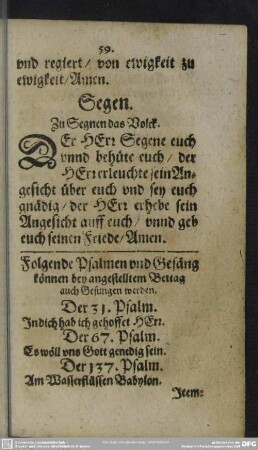 59.
vnd regiert/ von ewigkeit zu
ewigkeit/Amen.
Segen.
Zu Segnen das Volck.
DEr HErr Segene euch
vnnd behüte euch/ der
HErr erleuchte sein An-
gesicht über euch vnd sey euch
gnädig/ der HErr erhebe sein
Angesicht auff euch/ vnnd geb
euch seinen Friede/ Amen.
Folgende Psalmen vnd Gesäng
können bey angestelltem Bettag
auch Gesungen werden.
Der 31. Psalm.
In dich hab ich gehoffet HErr.
Der 67. Psalm.
Es wöll vns Gott genedig sein.
Der 137. Psalm.
Am Wasserflüssen Babylon.
Item: